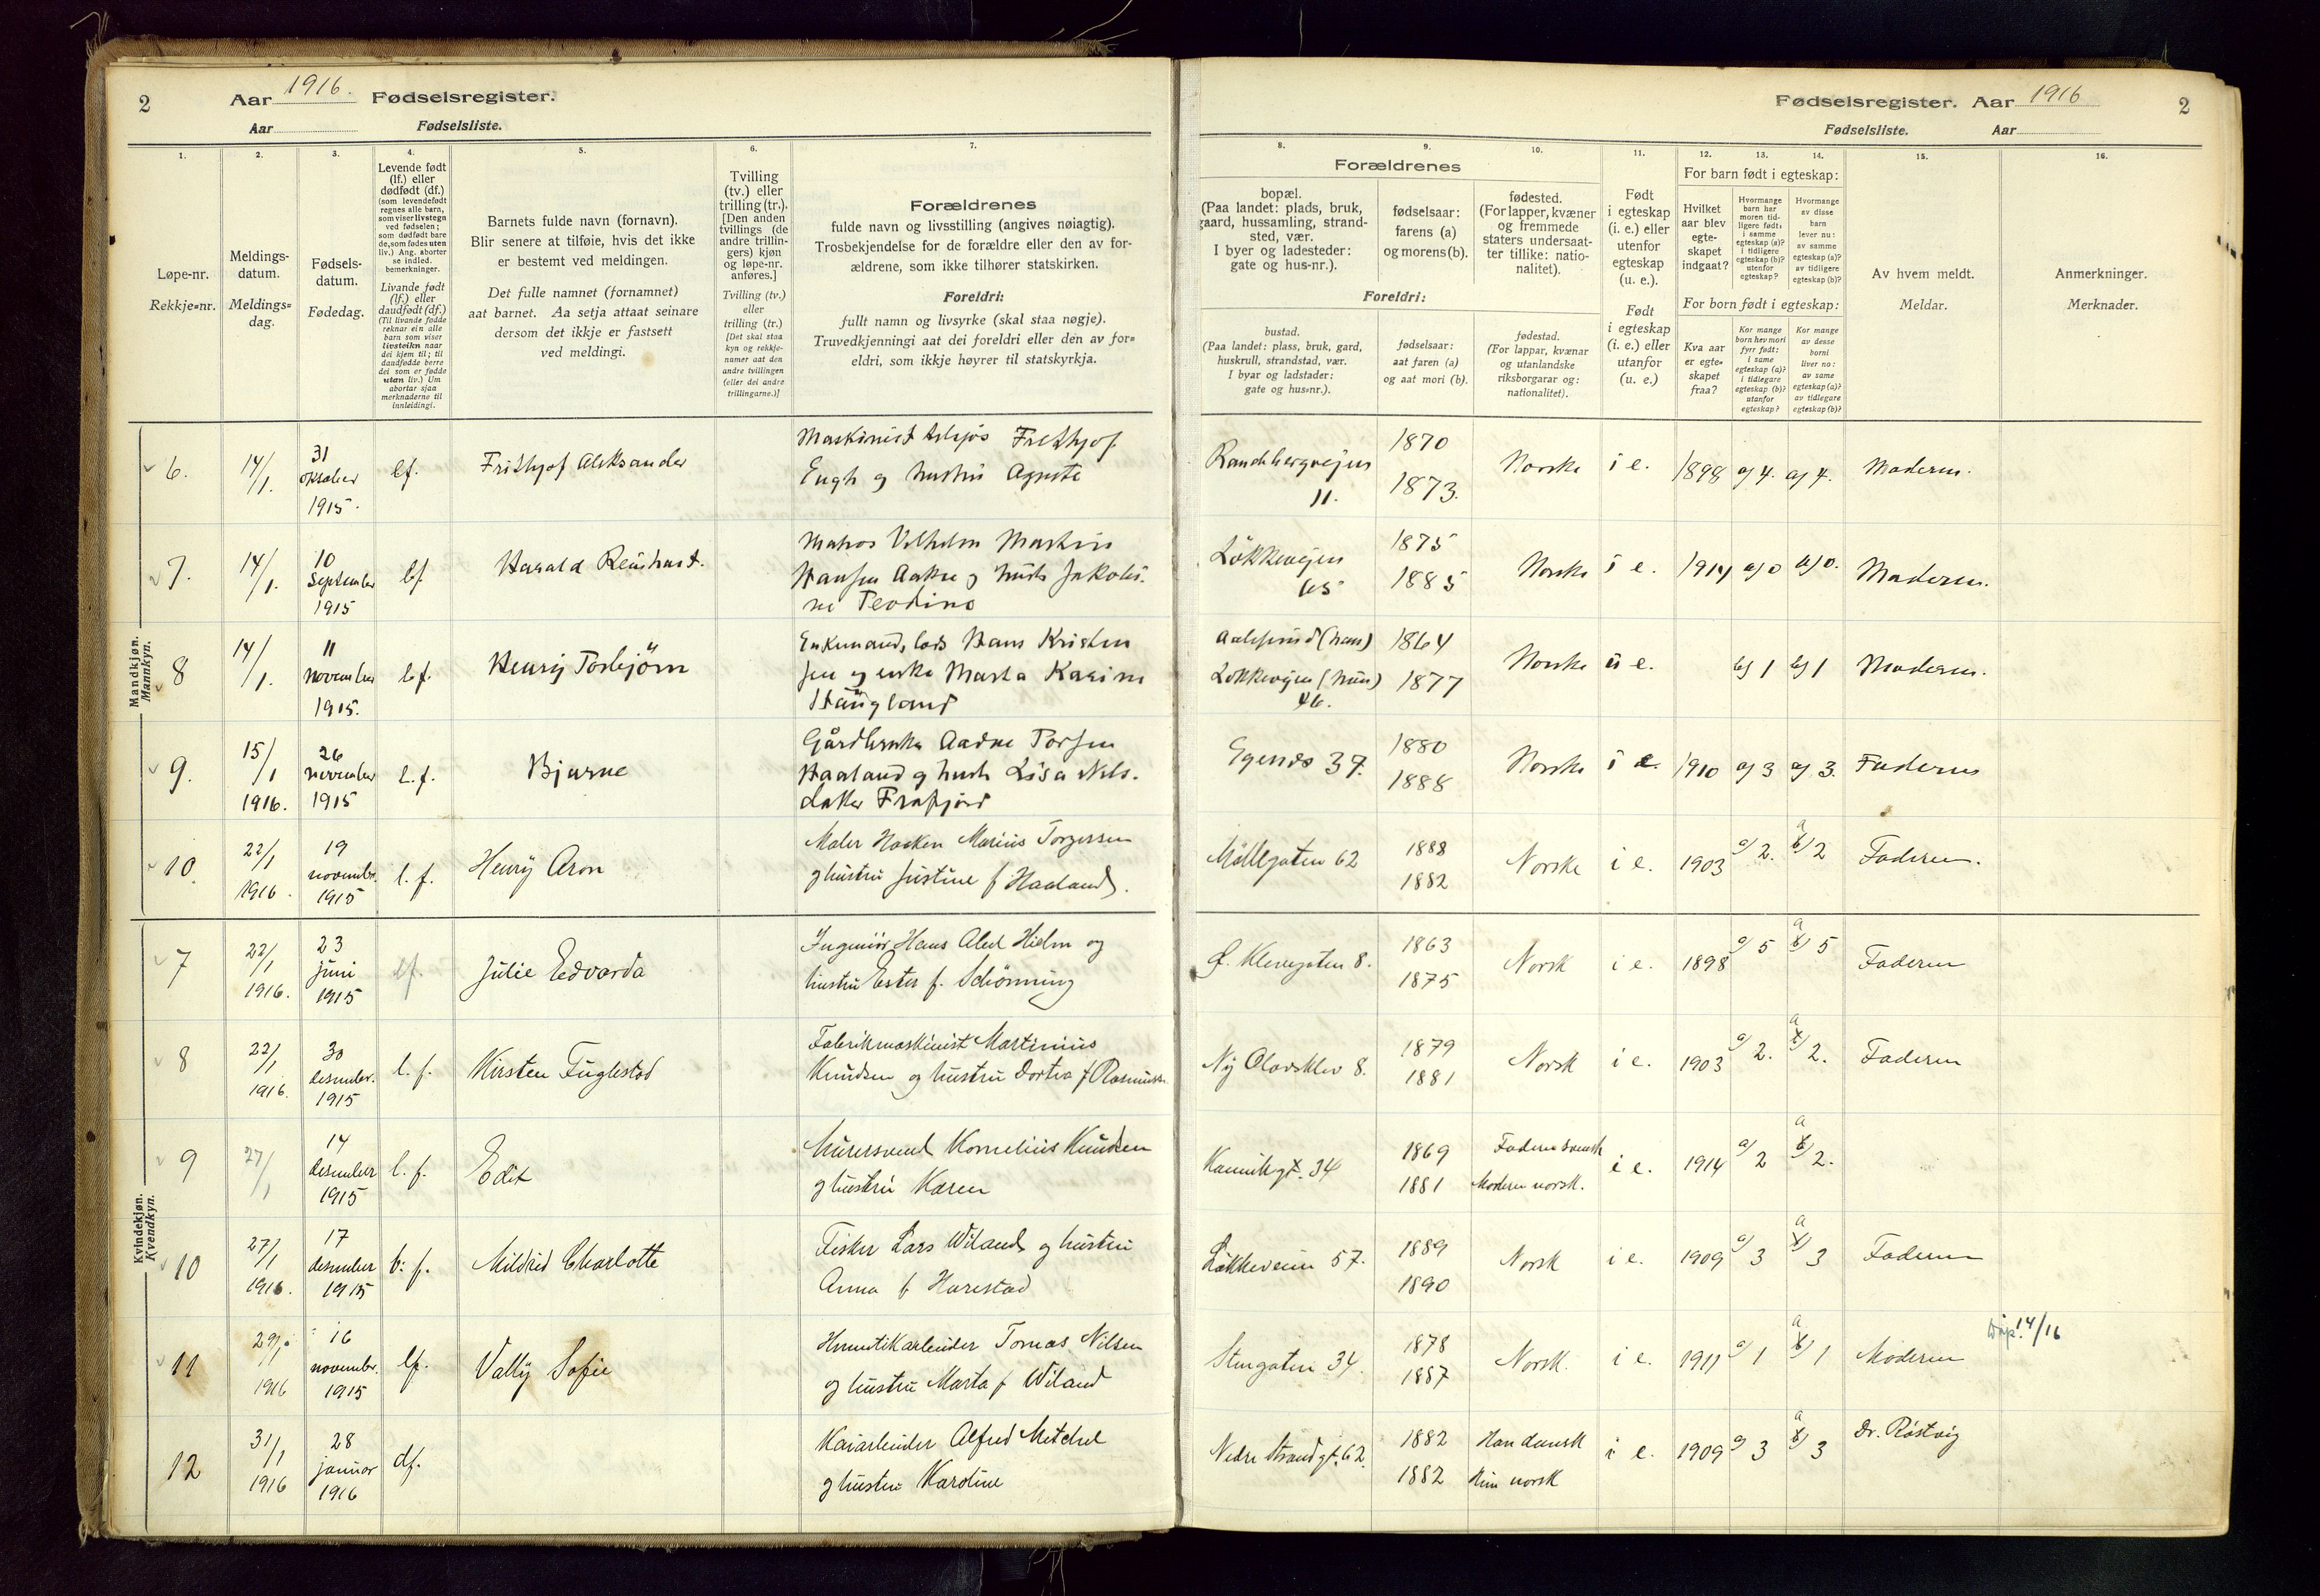 2
Aar 1916. Fødselsregister.
Aar Fødselsliste.
1.
2.
3.
4.
5.
6.
7.
Løpe-nr.
Rekkje=nr.
Meldings-
datum.
Meldings=
dag.
Fødsels-
datum.
Fødedag.
Levende født
(lf.) eller
dødfødt (df.)
(som levendefødt
regnes alle barn,
som viser livstegn
ved fødselen;
som dødfødt bare
de, som fødes uten
liv.) Ang. aborter
se indled.
bemerkninger.
Livande født
(lf.) eller
daudfødt (df.)
(Til livande fødde
reknar ein alle
barn som viser
livsteikn naar
dei kjem til; til
daudfødde berre
dei som er fødde
utan liv.) Um
abortar sjaa
merknaderne til
innleidingi.
Barnets fulde navn (fornavn).
Blir senere at tilføie, hvis det ikke
er bestemt ved meldingen.
Det fulle namnet (fornamnet)
aat barnet. Aa setja attaat seinare
dersom det ikkje er fastsett
ved meldingi.
Tvilling
(tv.) eller
trilling (tr.).
[Den anden
tvillings (de
andre trillin-
gers) kjøn
og løpe-nr.
anføres.]
Tvilling (tv.)
eller
trilling (tr.)
[Det skal staa
kyn og rekkje-
numer aat den
andre tvillingen
(eller dei andre
trillingarne.)]
Forældrenes
fulde navn og livsstilling (angives nøiagtig).
Trosbekjendelse for de forældre eller den av for-
ældrene, som ikke tilhører statskirken.
Foreldri:
fullt namn og livsyrke (skal staa nøgje).
Truvedkjenningi aat dei foreldri eller den av for=
eldri, som ikkje høyrer til statskyrkja.
Mandkjøn.
Mannkyn.
6. 14/1. 31 oktober 1915. lf. Frithjof Aleksander
Maskinist Frithjof
Engh og hustru Agnete
7. 14/1. 10 September 1915 lf. Harald Reinhart.
Matros Vilhelm Martin
Hansen Aakre og hustr Jakobi-
ne Teodine
8 14/1. 11 November 1915. l.f. Henry Torbjörn
Enkemand, lods Hans Kristen
sen og enke Marta Karine
Haugland
9. 15/1 1916. 26 november 1915 l.f. Bjarne
Aadne Torsen
Haaland og hustr Lisa Nils-
datter Frafjord
10 22/1 1916. 19 novembr. 1915 l. f. Henry Aron
Maler Haakon Marius Torgersen
og hustru Justine f Haaland.
Kvindekjøn.
Kvendkyn.
7 22/1 1916. 23 juni 1915 lf. Julie Edvarda
Ingeniør Hans Abel Hielm og
hustru Ester f. Schönning
8 22/1 1916. 30 desember. 1915 l. f. Kirsten Fuglestad
Fabrikmaskinist Martinius
Knudsen og hustru Dortea f Rasmussen
9 27/1 14 desember 1915 l. f. Edit
Murersvend Kornelius Knudsen
og hustru Karen
10 27/1 1916. 17 desember 1915 l. f. Mildrid Charlotte
Fisker Lars Wiland og hustru
Anna f Harestad
11 29/1 1916 16 novembr. 1915 lf. Vally Sofie
Hermetikarbeider Tomas Nilsen
og hustru Marta f Wiland
12 31/1 1916 28 januar 1916 df.
Kaiarbeider Alfred Mitchel
og hustru Karoline
Fødselsregister. Aar 1916 2
Fødselsliste. Aar
8.
9.
10.
11.
12.
13.
14.
15.
16.
Forældrenes
bopæl.
(Paa landet: plads, bruk,
gaard, hussamling, strand-
sted, vær.
I byer og ladesteder:
gate og hus-nr.).
fødselsaar:
farens (a)
og morens (b).
fødested.
(For lapper, kvæner
og fremmede
staters undersaat-
ter tillike: natio-
nalitet).
Foreldri:
bustad.
(Paa landet: plass, bruk, gard,
huskrull, strandstad, vær.
I byar og ladstader:
gate og hus=nr.).
fødselsaar:
aat faren (a)
og aat mori (b).
fødestad.
(For lappar, kvænar
og utanlandske
riksborgarar og:
nationalitet).
Født
i egteskap
(i. e.) eller
utenfor
egteskap
(u. e.).
Født
i egteskap
(i. e.) eller
utanfor
(u. e.)
For barn født i egteskap:
Hvilket
aar blev
egte-
skapet
indgaat?
Hvormange
barn har
moren tid-
ligere født:
i samme
egteskap (a)?
i tidligere
egteskap (b)?
utenfor
egteskap?
Hvormange
av disse
barn
lever nu:
av samme
egteskap (a)?
av tidligere
egteskap (b)?
For born født i egteskap:
Kva aar
er egte-
skapet
fraa?
Kor mange
born hev mori
fyrr født:
i same
egteskap (a)?
i tidlegare
egteskap (b)?
utanfor
egteskap?
Kor mange
av desse
borni
liver no:
av same
egteskap (a)?
av tidlegare
egteskap (b)?
Av hvem meldt.
Meldar.
Anmerkninger.
Merknader.
Randebergveien 11. 1870 1873. Norske i e. 1898 a) 4. a) 4. Moderen.
Løkkeveien 65 1875 1885 Norske i e. 1914 a) 0 a) 0. Moderen.
Aalesund (han) Løkkeveien (hun) 46. 1864 1877 Norske u e. b) 1 b) 1 Moderen.
Egenes 37. 1880 1888 Norske i e. 1910 a) 3 a) 3. Faderen
Møllegaten 62 1888 1882 Norske i e. 1903 a) 2. a b) 2 Faderen.
Ø. Klevegaten 8. 1863 1875 Norsk i e. 1898 a) 5 a b) 5 Faderen
Ny Olavsklev 8. 1879 1881 Norsk i e. 1903 a) 2. a b) 2. Faderen
Kannikgt. 34 1869 1881 Faderen svensk Moderen norsk. i e. 1914 a) 2 a b) 2.
Løkkeveien 57. 1889 1890 Norsk i e. 1909 a) 3 a b) 3 Faderen
Stengaten 34. 1878 1887 Norsk. i e. 1911 a) 1 a b) 1 Moderen 14/16
Nedre Strandgt. 62. 1882 1882 Han dansk Hun norsk i e. 1909 a) 3 a b) 3 Dr. Röstvig